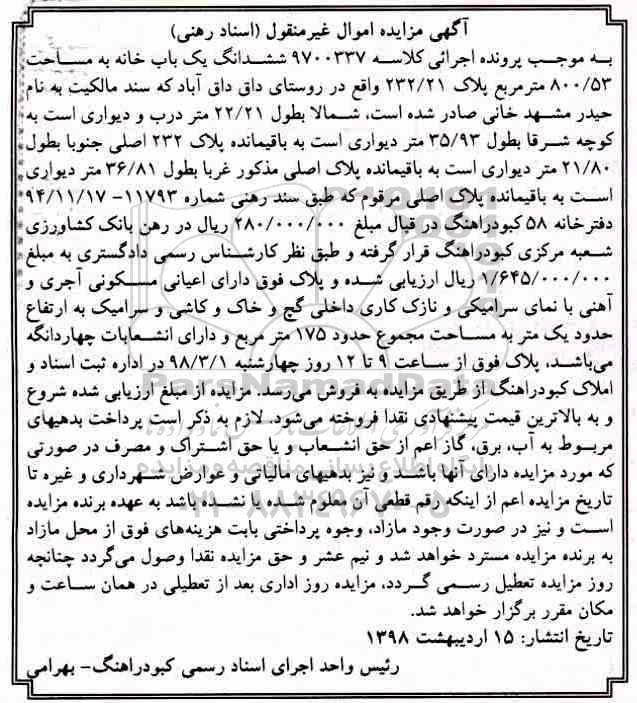 آگهی مزایده اموال غیرمنقول (اسناد رهنی)
به موجب پرونده اجرائی کلاسه ۹۷۰۰۳۳۷ ششدانگ یک باب خانه به مساحت
۸۰۰/۵۳ مترمربع پلاک ۲۳۲/۲۱ واقع در روستای داق داق آباد که سند مالکیت به نام
حیدر مشهد خانی صادر شده است، شمالا بطول ۲۲/۲۱ متر درب و دیواری است به
کوچه شرقا بطول ۳۵/۹۳ متر دیواری است به باقیمانده پلاک ۲۳۲ اصلی جنوبا بطول
۲۱/۸۰ متر دیواری است به باقیمانده پلاک اصلی مذکور غربا بطول ۳۶/۸۱ متر دیواری
است به باقیمانده پلاک اصلی مرقوم که طبق سند رهنی شماره ۱۱۷۹۳- ۹۴/۱۱/۱۷
دفترخانه ۵۸ کبودراهنگ در قبال مبلغ ۲۸۰/۰۰۰/۰۰۰ ریال در رهن بانک کشاورزی
شعبه مرکزی کبودراهنگ قرار گرفته و طبق نظر کارشناس رسمی دادگستری به مبلغ
۱/۶۴۵/۰۰۰/۰۰۰ ریال ارزیابی شده و پلاک فوق دارای اعیانی مسکونی آجری و
آهنی با نمای سرامیکی و نازک کاری داخلی گچ و خاک و کاشی و سرامیک به ارتفاع
حدود یک متر به مساحت مجموع حدود ۱۷۵ متر مربع و دارای انشعابات چهاردانگه
می‌باشد، پلاک فوق از ساعت ۹ تا ۱۲ روز چهارشنبه ۹۸/۳/۱ در اداره ثبت اسناد و
املاک کبودراهنگ از طریق مزایده به فروش می‌رسد. مزایده از مبلغ ارزیابی شده شروع
و به بالاترین قیمت پیشنهادی نقدا فروخته می‌شود. لازم به ذکر است پرداخت بدهیهای
مربوط به آب، برق، گاز اعم از حق انشعاب و یا حق اشتراک و مصرف در صورتی
که مورد مزایده دارای آنها باشد و نیز بدهیهای مالیاتی و عوارض شهرداری و غیره تا
تاریخ مزایده اعم از اینکه رقم قطعی آن معلوم شده یا نشده باشد به عهده برنده مزایده
است و نیز در صورت وجود مازاد، وجوه پرداختی بابت هزینه‌های فوق از محل مازاد
به برنده مزایده مسترد خواهد شد و نیم عشر و حق مزایده نقدا وصول می‌گردد چنانچه
روز مزایده تعطیل رسمی گردد، مزایده روز اداری بعد از تعطیلی در همان ساعت و
مکان مقرر برگزار خواهد شد.
تاریخ انتشار: ۱۵ اردیبهشت ۱۳۹۸
رئیس واحد اجرای اسناد رسمی کبودراهنگ- بهرامی
ParsNamadData